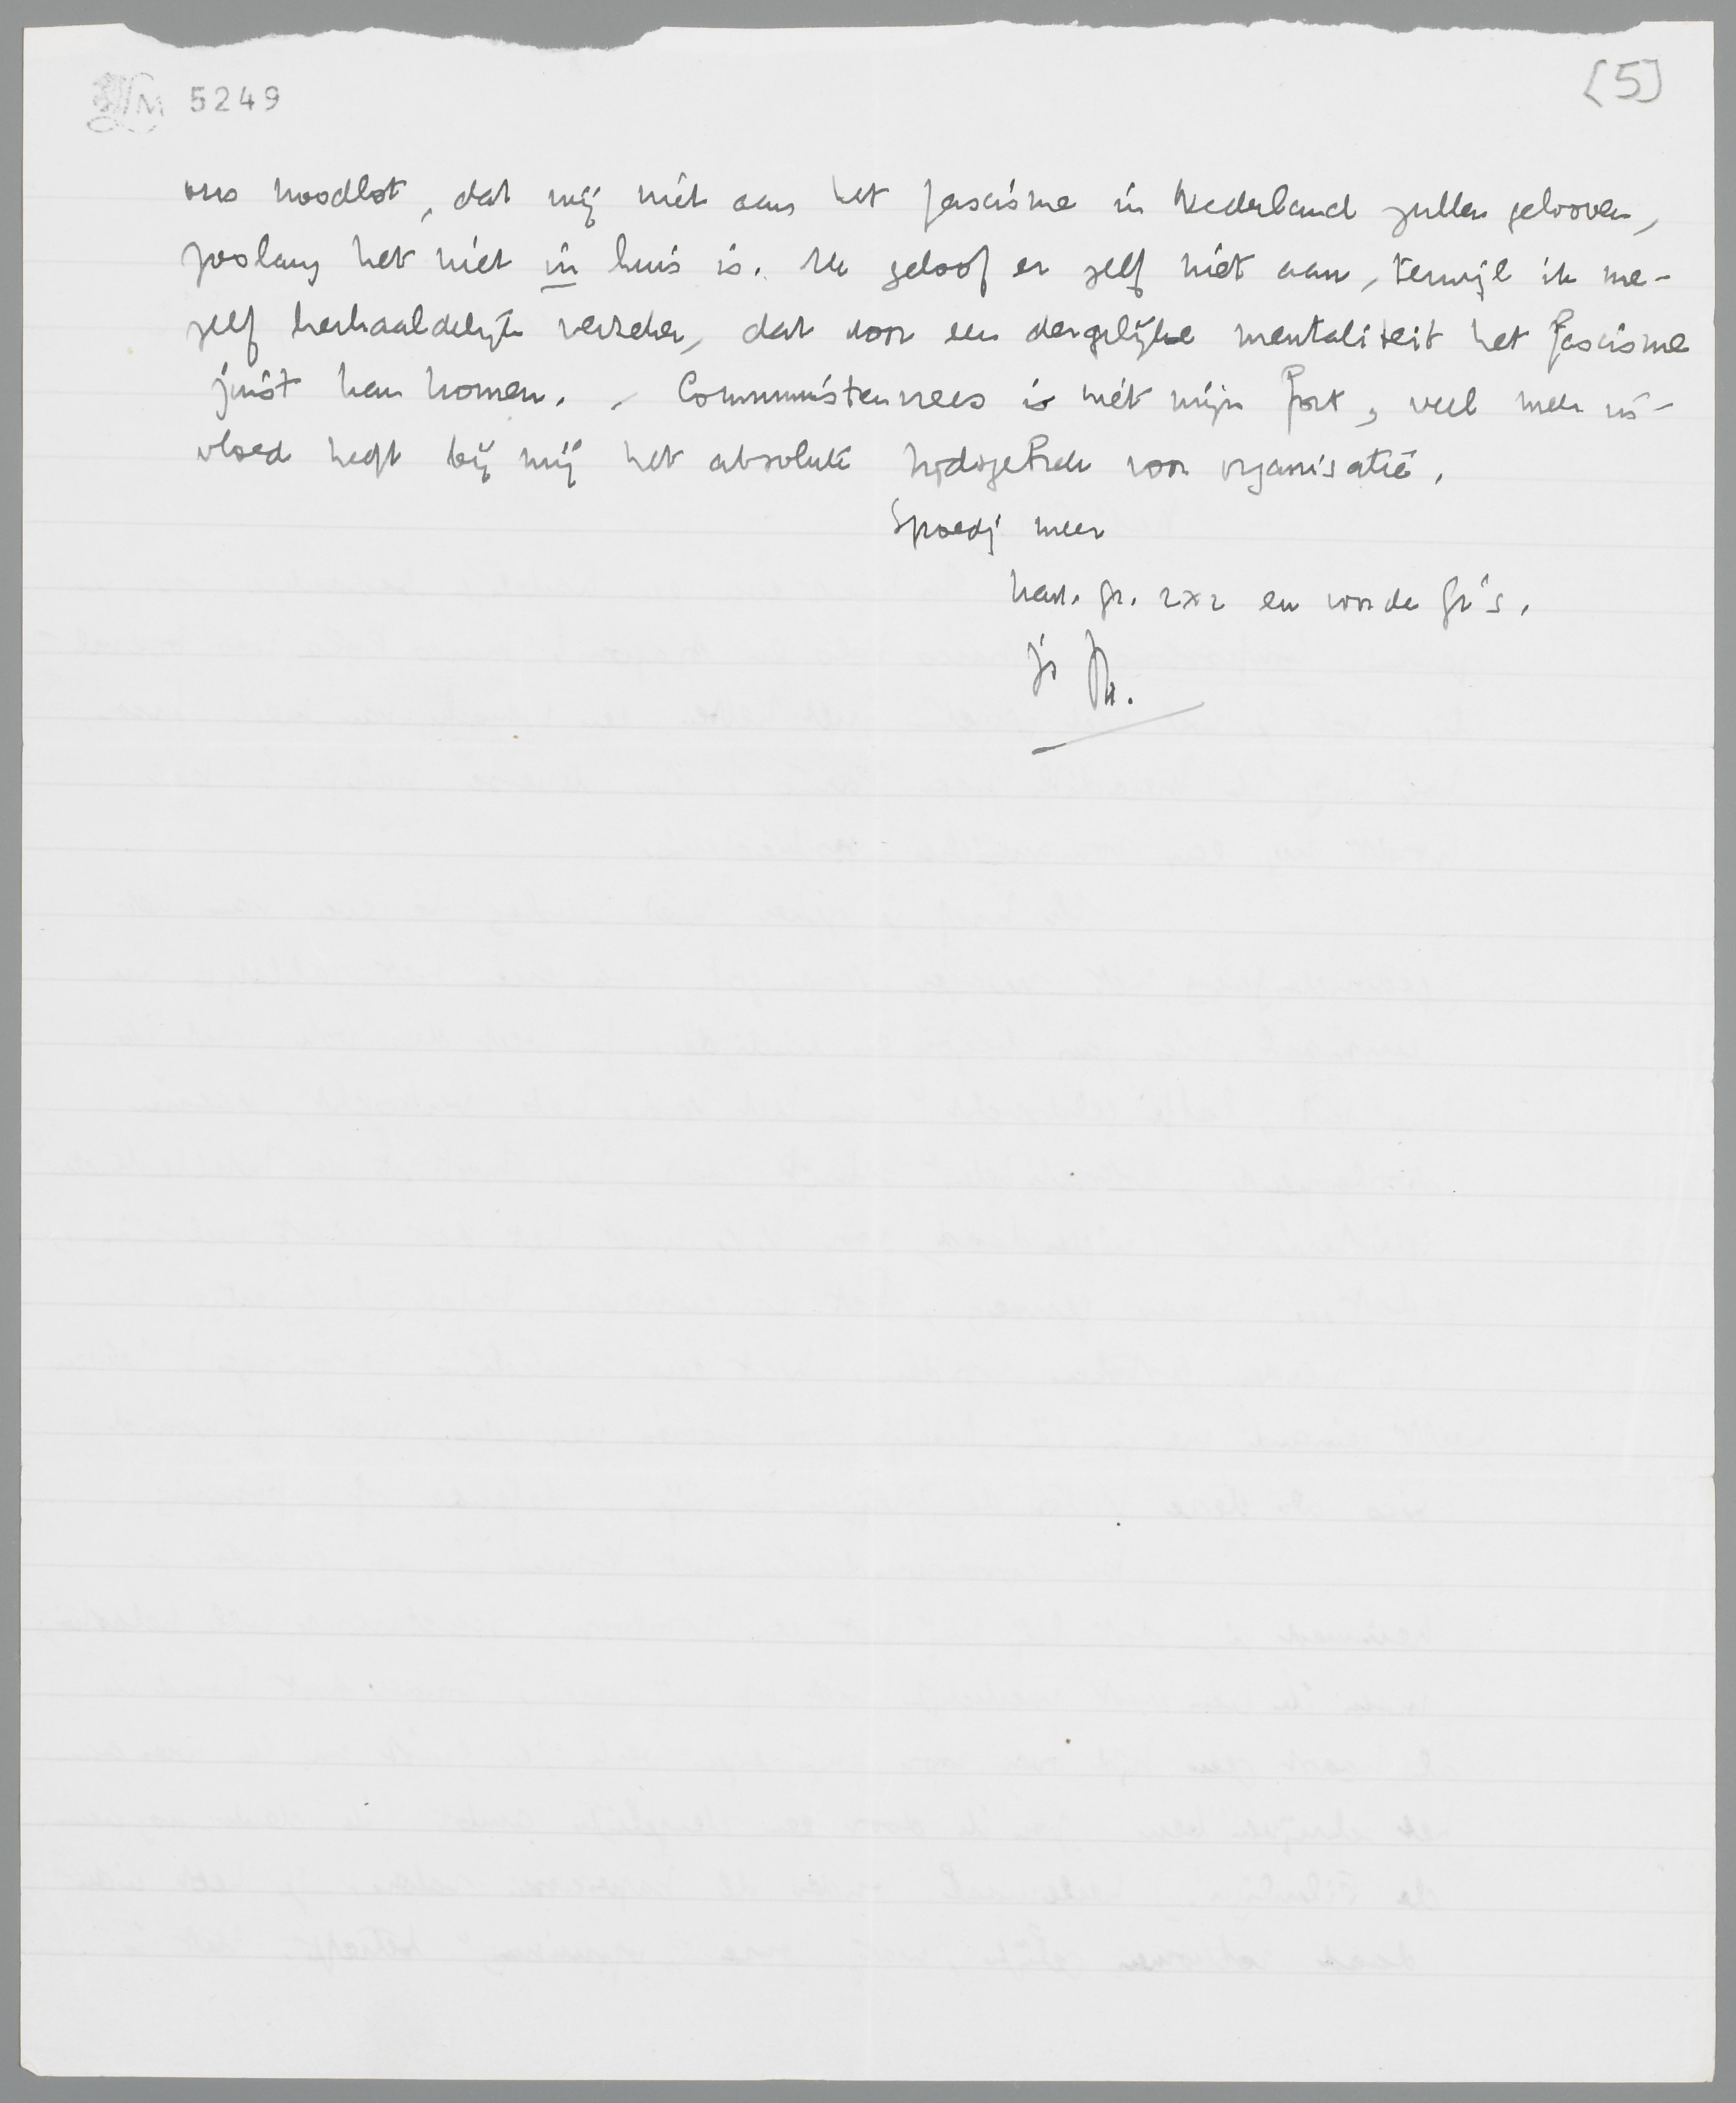 5249
[5]
ons noodlot, dat wij niet aan het fascisme in Nederland zullen gelooven,
zoolang het niet in huis is. Ik geloof er zelf niet aan, terwijl ik me-
zelf herhaaldelijk verzeker, dat voor een dergelijke mentaliteit het fascisme
juist kan komen. – Communistenvrees is niet mijn fort, veel meer in-
vloed heeft bij mij het absolute hydsgebrek voor organisatie.
Spoedig meer
hart. gr. 2x2 en voor de Gr's.
je